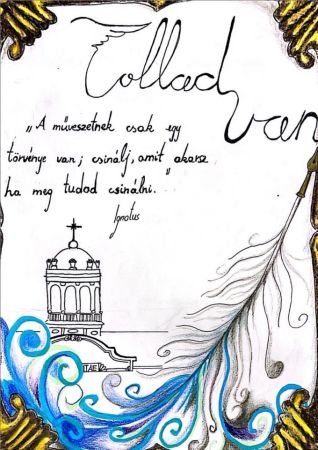 Tollad
van
„A művészetnek csak egy
törvénye van; csinálj, amit akarsz,
ha meg tudod csinálni."
Ignotus